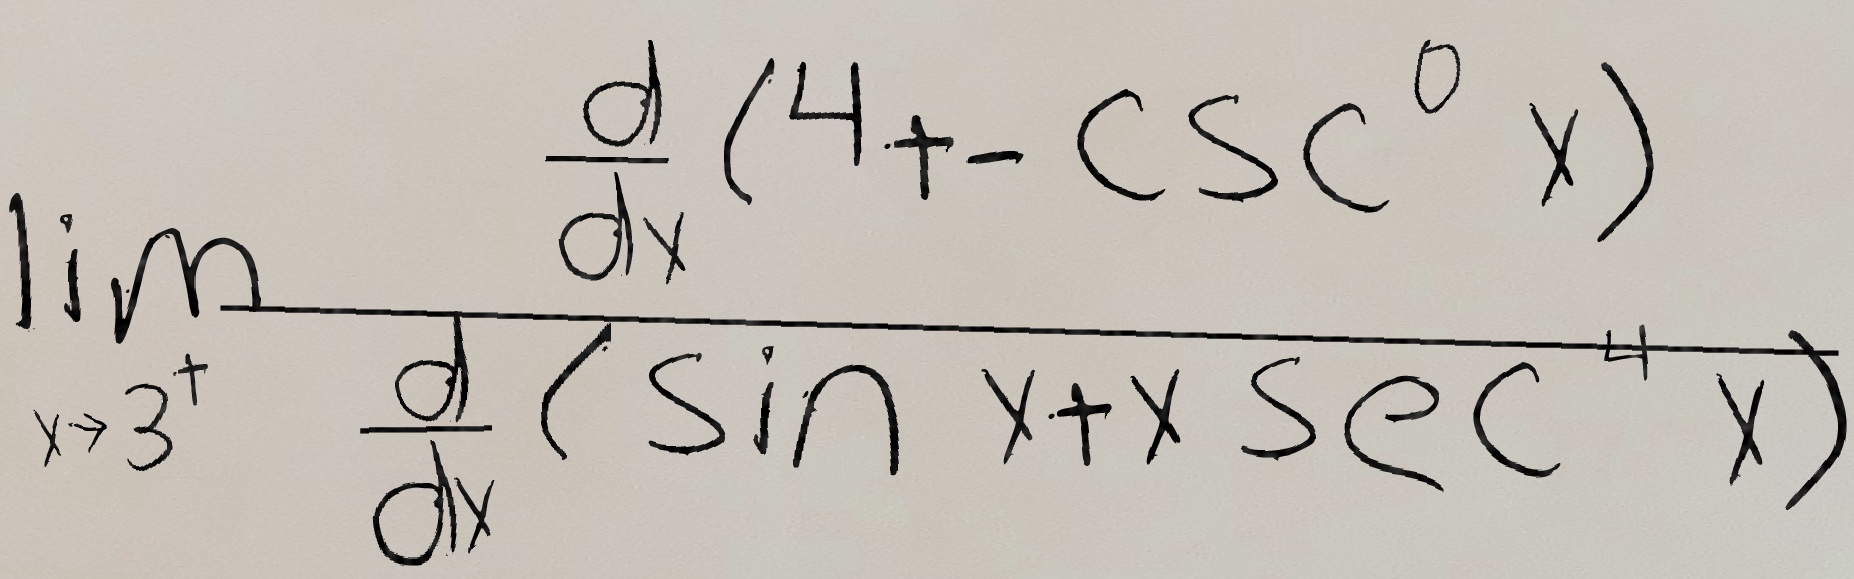 \lim_{x \to 3^+} \frac{\frac{d}{dx}(4+-\csc^0 x)}{\frac{d}{dx}(\sin x+x\sec^4 x)}